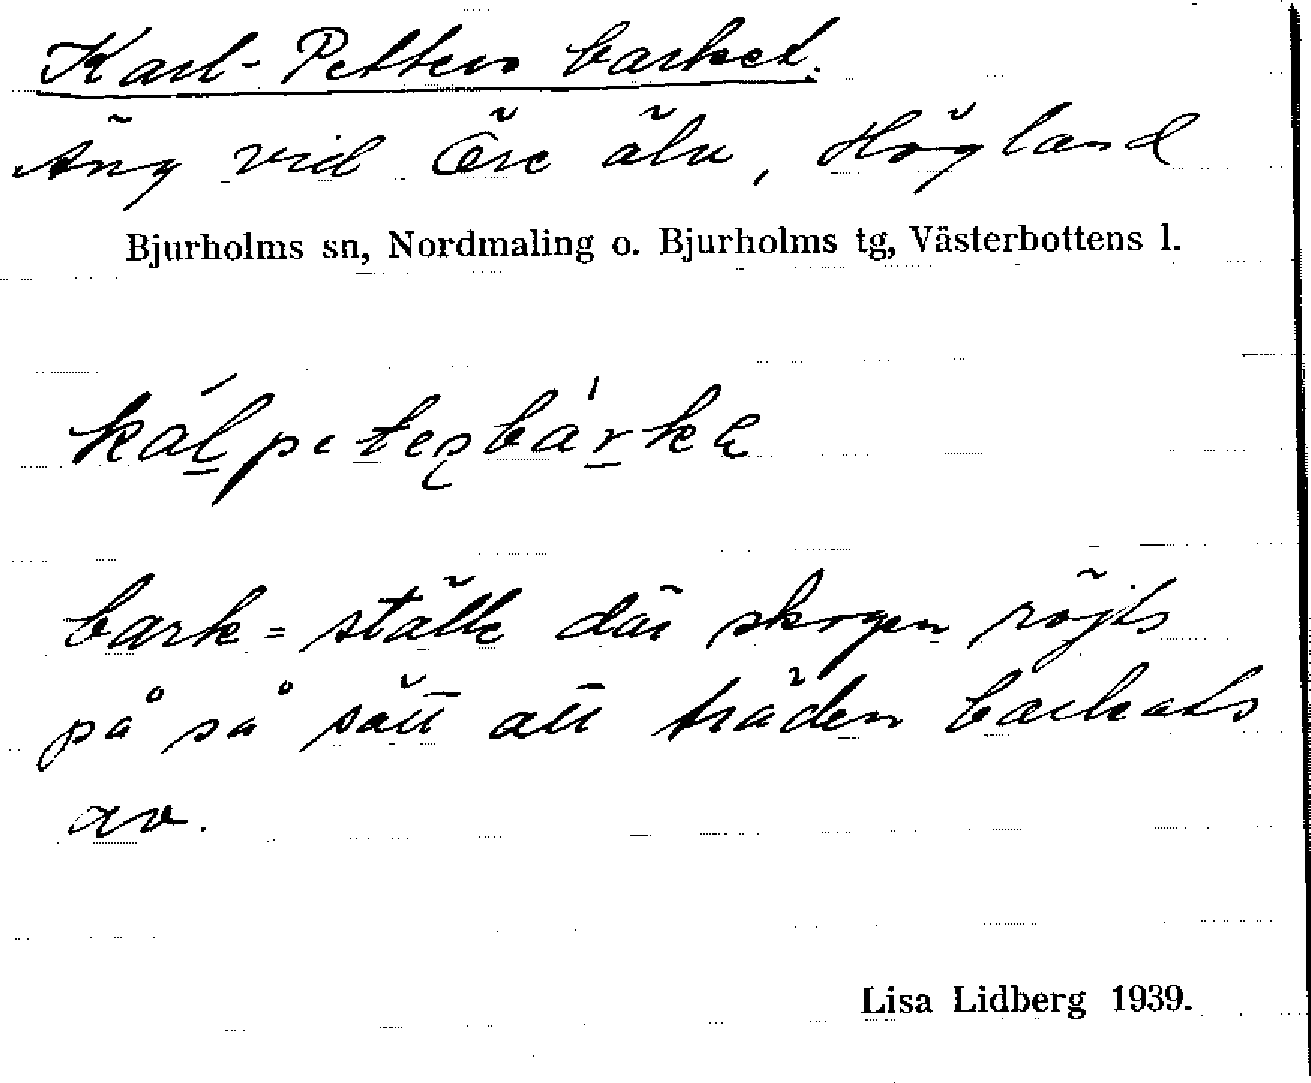 Karl-Petters barket.
Äng vid Öre älv, Högland
Bjurholms sn, Nordmaling o. Bjurholms tg, Västerbottens l.
bark = ställe där skogen röjts
på så sätt att träden barkats
av.
Lisa Lidberg 1939.